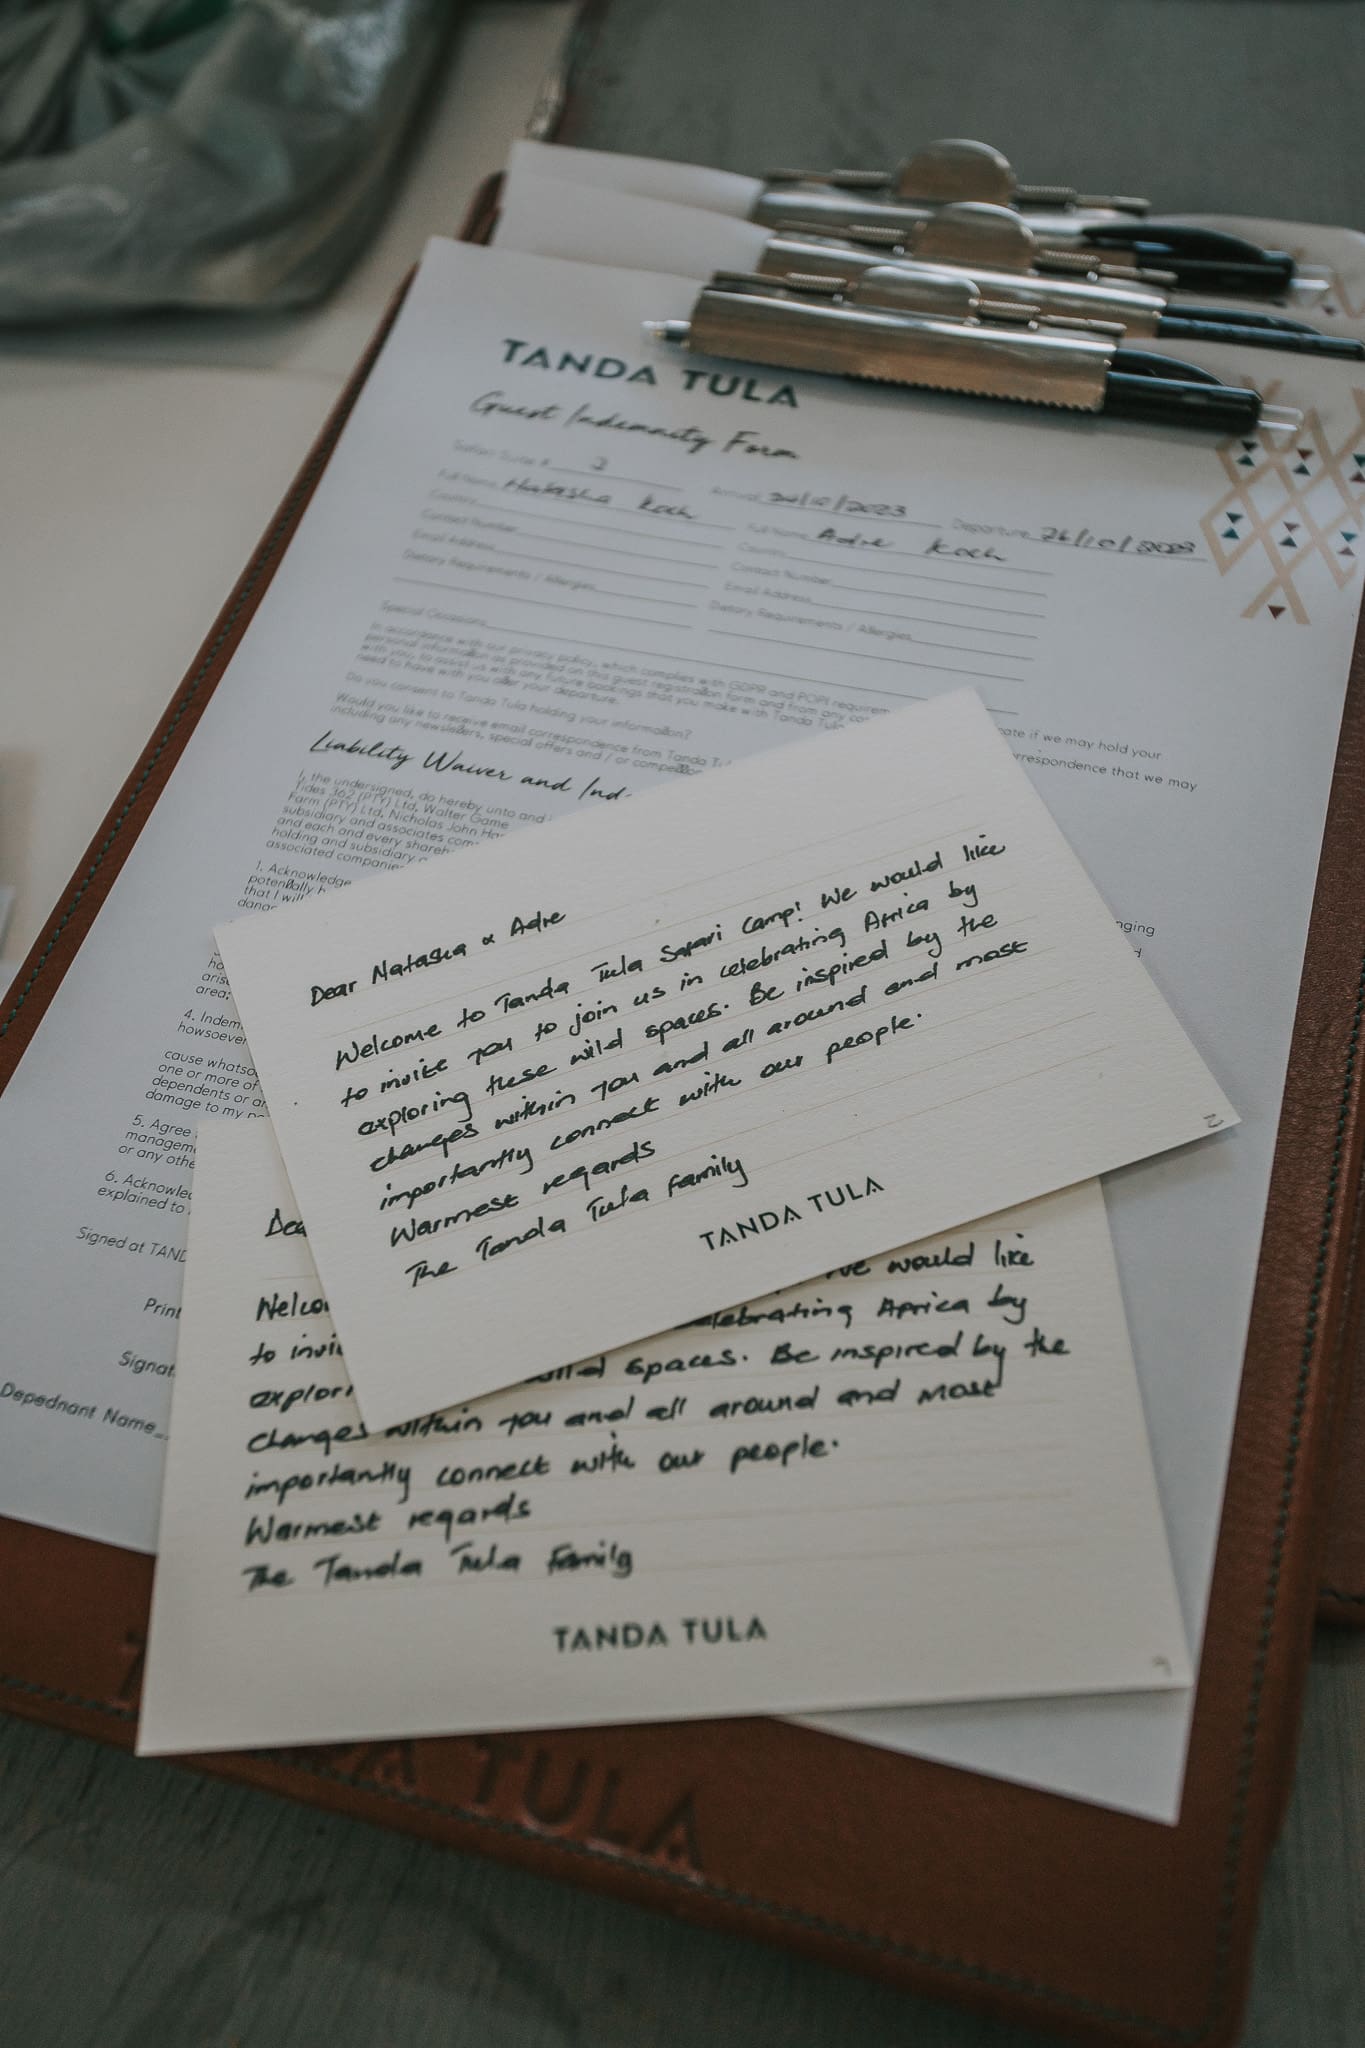 TANDA TULA
Guest Indemnity Form
Safari Suite # 2 Arrival 24/10/2023 Departure 26/10/2023
Full Name Natasha Koch Full Name Adre Koch
Country Country
Contact Number Contact Number
Email Address Email Address
Dietary Requirements / Allergies Dietary Requirements / Allergies
Special Occasions
In accordance with our privacy policy, which complies with GDPR and POPI requirem cate if we may hold your
personal information as provided on this guest registration form and from any co rrespondence that we may
with you, to assist us with any future bookings that you make with Tanda Tula
need to have with you after your departure.
Do you consent to Tanda Tula holding your information?
Would you like to receive email correspondence from Tanda Tu
including any newsletters, special offers and / or competition
Liability Waiver and Ind
I, the undersigned, do hereby unto and
Tides 362 (PTY) Ltd, Walter Game
Farm (PTY) Ltd, Nicholas John Ha
subsidiary and associates com
and each and every shareh
holding and subsidiary
associated companie
1. Acknowledge
potentially h
that I will
dang
nging
arisi
area;
4. Indem
howsoever
cause whatso
one or more of
dependents or a
damage to my
5. Agree
managem
or any othe
6. Acknowled
explained to
Signed at TAND
Print
Signat
Depednant Name
Dear Natasha & Adre
Welcome to Tanda Tula Safari Camp! We would like
to invite you to join us in celebrating Africa by
exploring these wild spaces. Be inspired by the
changes within you and all around and most
importantly connect with our people.
Warmest regards
The Tanda Tula Family
TANDA TULA
2
Dea
Welco we would like
to invi elebrating Africa by
explori wild spaces. Be inspired by the
changes within you and all around and most
importantly connect with our people.
Warmest regards
The Tanda Tula Family
TANDA TULA
TANDA TULA